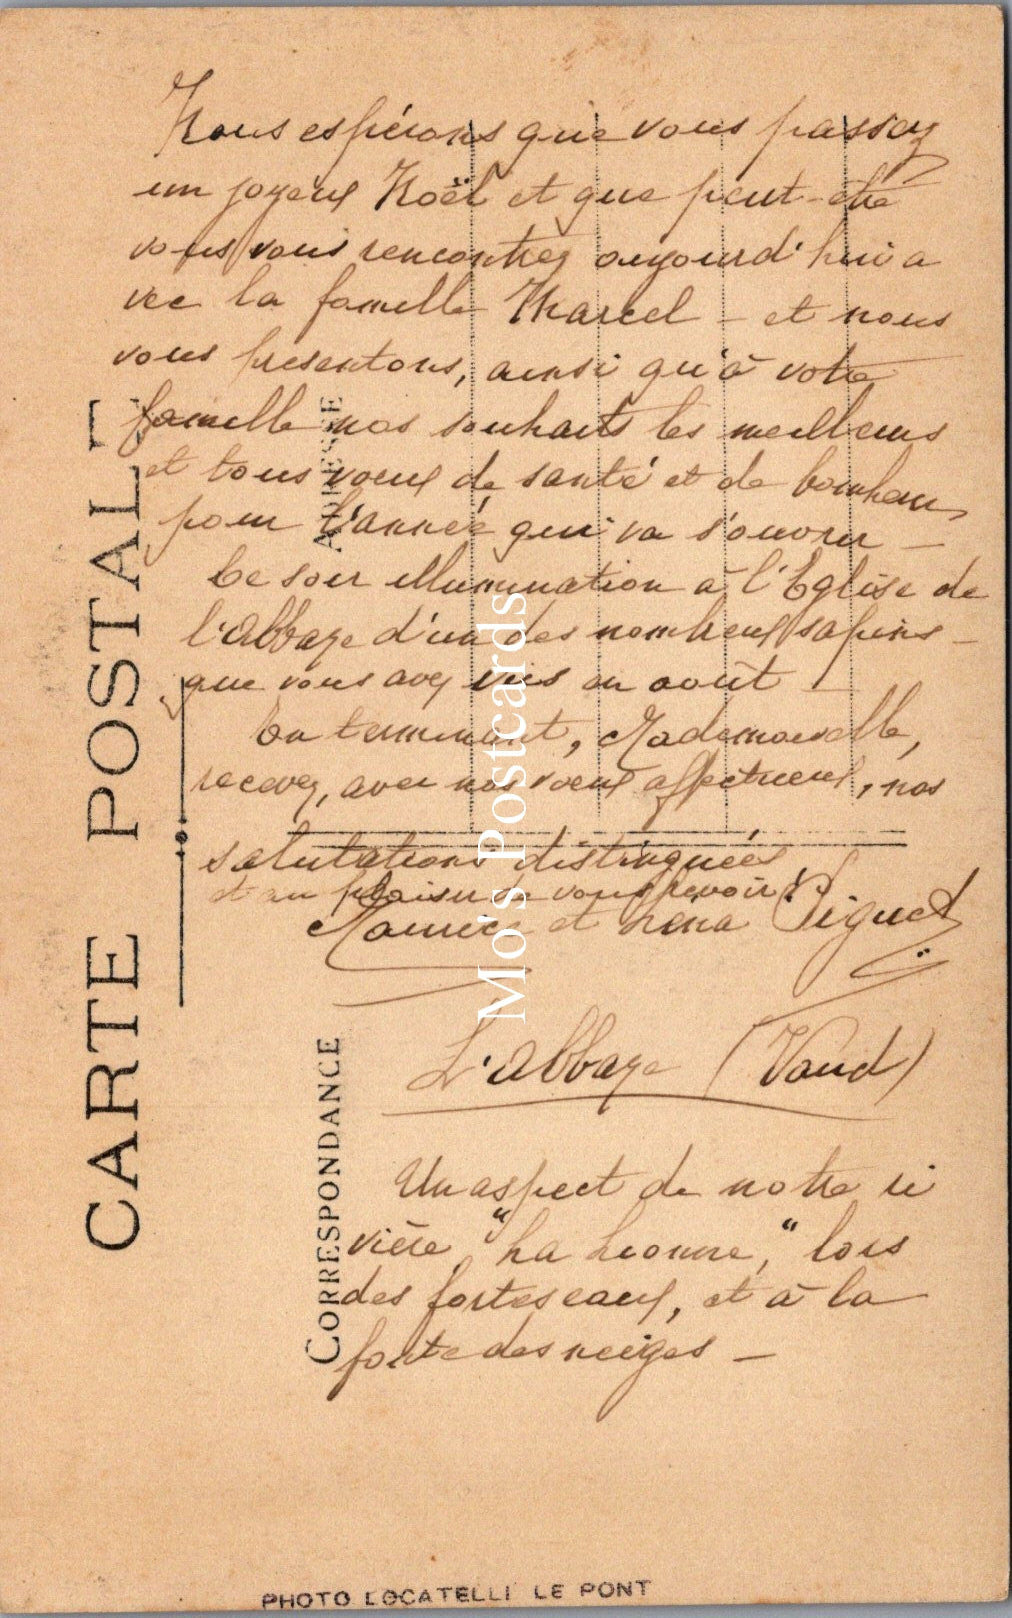 Nous espérons que vous passez
un joyeux Noël et que peut-être
vous vous rencontrez aujourd'hui a
vec la famille Marcel - et nous
vous présentons, ainsi qu'à votre
famille nos souhaits les meilleurs
et tous voeux de santé et de bonheur,
pour l'année qui va s'ouvrir -
Ce soir illumination à l'Eglise de
l'Abbaye d'un des nombreux sapins -
que vous avez vus en août -
En terminant, Mademoiselle,
recevez, avec nos voeux affectueux, nos
salutations distinguées
et au plaisir de vous revoir!
Maurice et Léna Piguet
L'Abbaye (Vaud)
Un aspect de notre ri
vière "La Lionne," lors
des fortes eaux, et à la
fonte des neiges -
CARTE POSTALE
ADRESSE
CORRESPONDANCE
Mo's Postcards
PHOTO LOCATELLI LE PONT